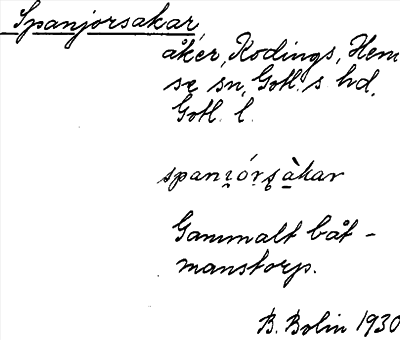 Spanjorsakar,
åker, Kodings, Hem
se sn, Gotl. s hd,
Gotl. l.
spani̯órs̨àkar
Gammalt båt-
manstorp.
B. Bolin 1930